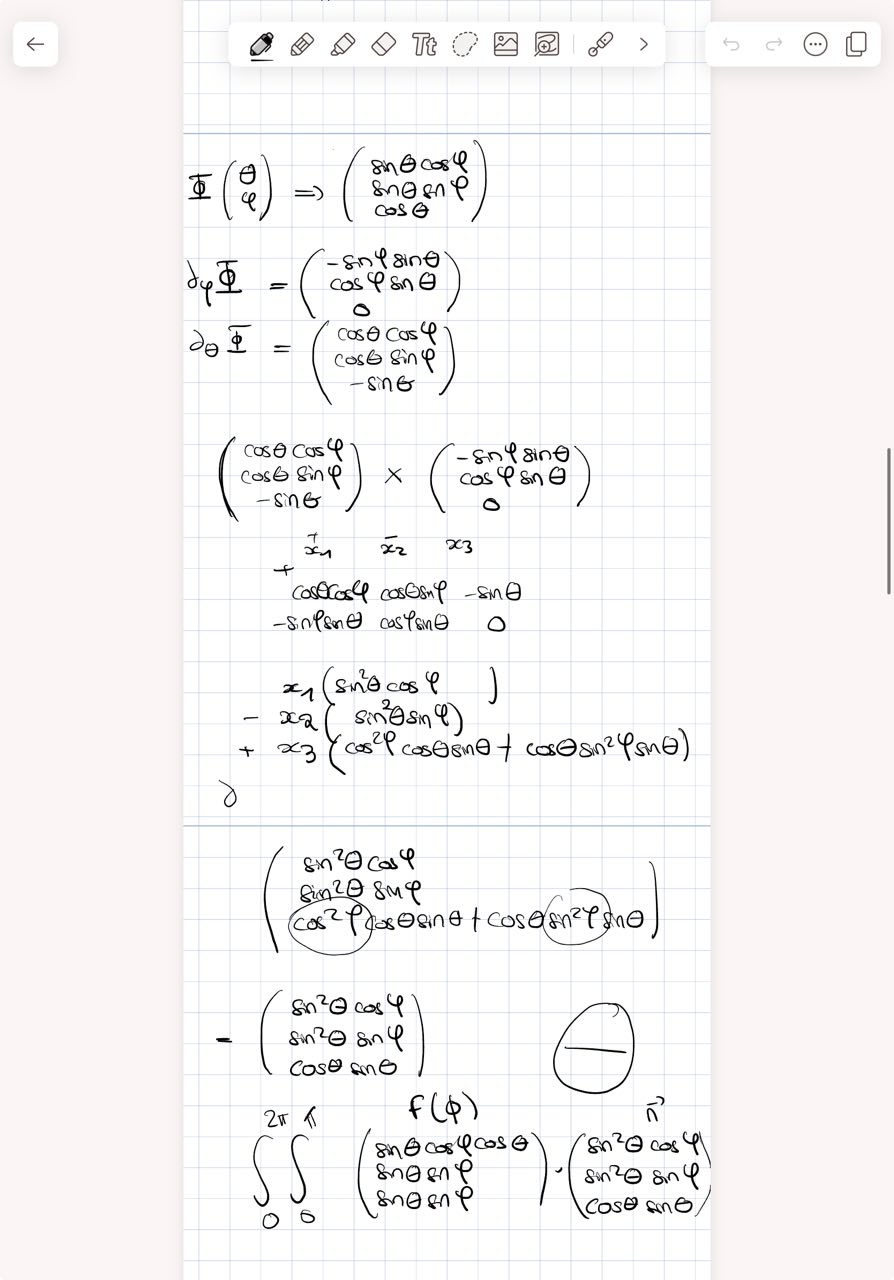 Tt
Φ (θ φ) => (sinθ cosφ
sinθ sinφ
cosθ)
∂φ Φ = (-sinφ sinθ
cosφ sinθ
0)
∂θ Φ = (cosθ cosφ
cosθ sinφ
-sinθ)
(cosθ cosφ
cosθ sinφ
-sinθ) × (-sinφ sinθ
cosφ sinθ
0)
+ - 
x1 x2 x3
+
cosθcosφ cosθsinφ -sinθ
-sinφsinθ cosφsinθ 0
x1 (sin²θ cosφ )
- x2 ( sin²θ sinφ)
+ x3 (cos²φ cosθ sinθ + cosθ sin²φ sinθ)
∂
(sin²θ cosφ
sin²θ sinφ
cos²φ cosθ sinθ + cosθ sin²φ sinθ)
= (sin²θ cosφ
sin²θ sinφ
cosθ sinθ)
f(ϕ) n⃗
2π π
∫ ∫ (sinθ cosφ cosθ
sinθ sinφ
sinθ sinφ) · (sin²θ cosφ
sin²θ sinφ
cosθ sinθ)
0 0